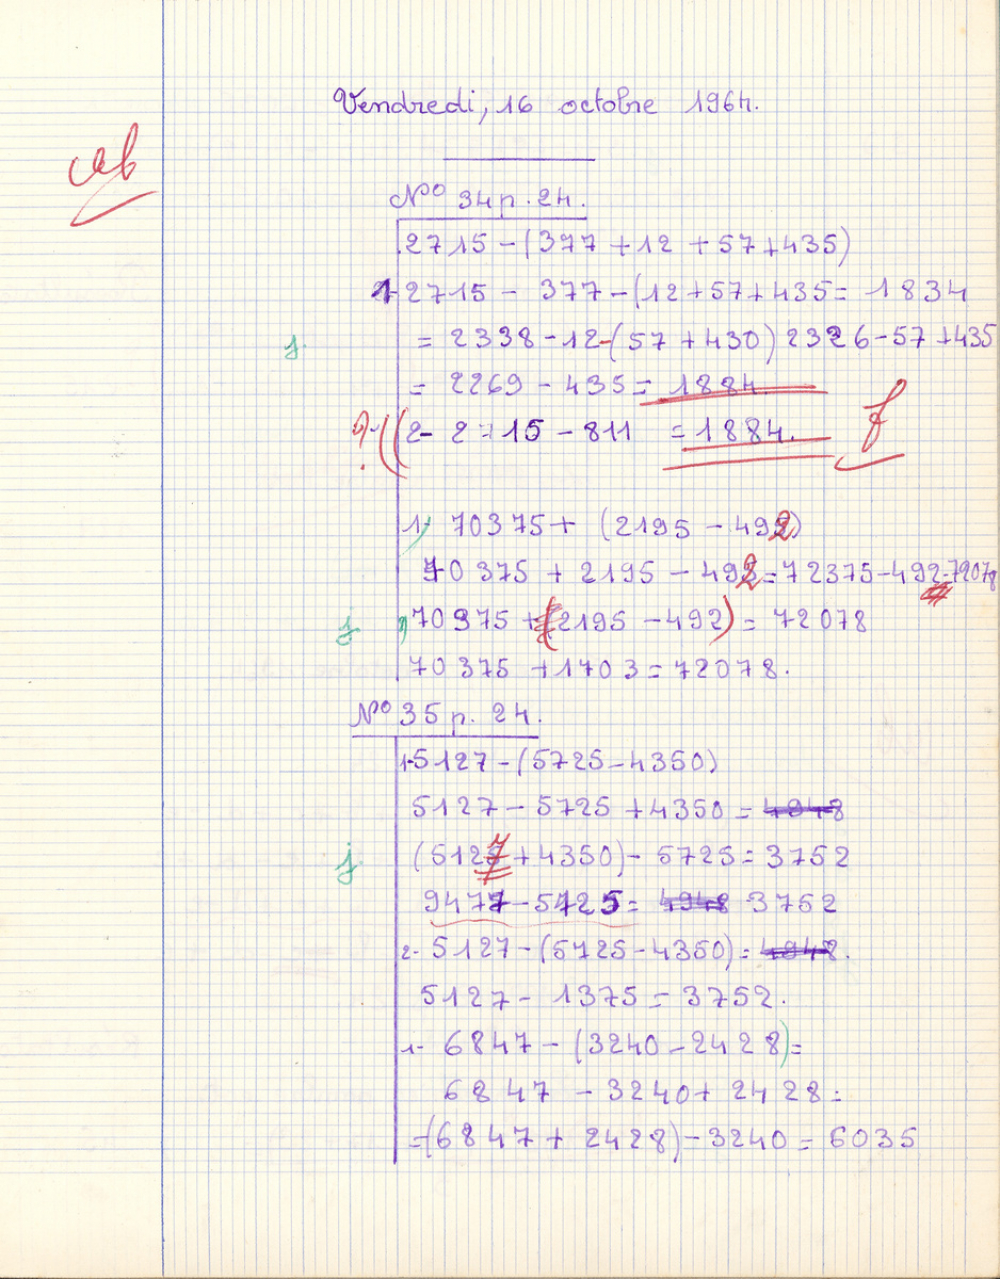 Vendredi, 16 octobre 1964.
Nº 34 p. 24.
2715 - (377 + 12 + 57 + 435)
1- 2715 - 377 - (12 + 57 + 435 = 1834
j.
= 2338 - 12 - (57 + 430) 2326 - 57 + 435
= 2269 - 435 = 1834.
2- 2715 - 811 = 1884.
f
1) 70375 + (2195 - 492)
70375 + 2195 - 492 = 72375 - 492 = 72078
j
70375 + (2195 - 492) = 72078
70375 + 1703 = 72078.
Nº 35 p. 24.
1- 5127 - (5725 - 4350)
5127 - 5725 + 4350 = 4948
j
(5127 + 4350) - 5725 = 3752
9477 - 5725 = 4948 3752
2- 5127 - (5725 - 4350) = 4948.
5127 - 1375 = 3752.
1- 6847 - (3240 - 2428) =
6847 - 3240 + 2428 =
= (6847 + 2428) - 3240 = 6035